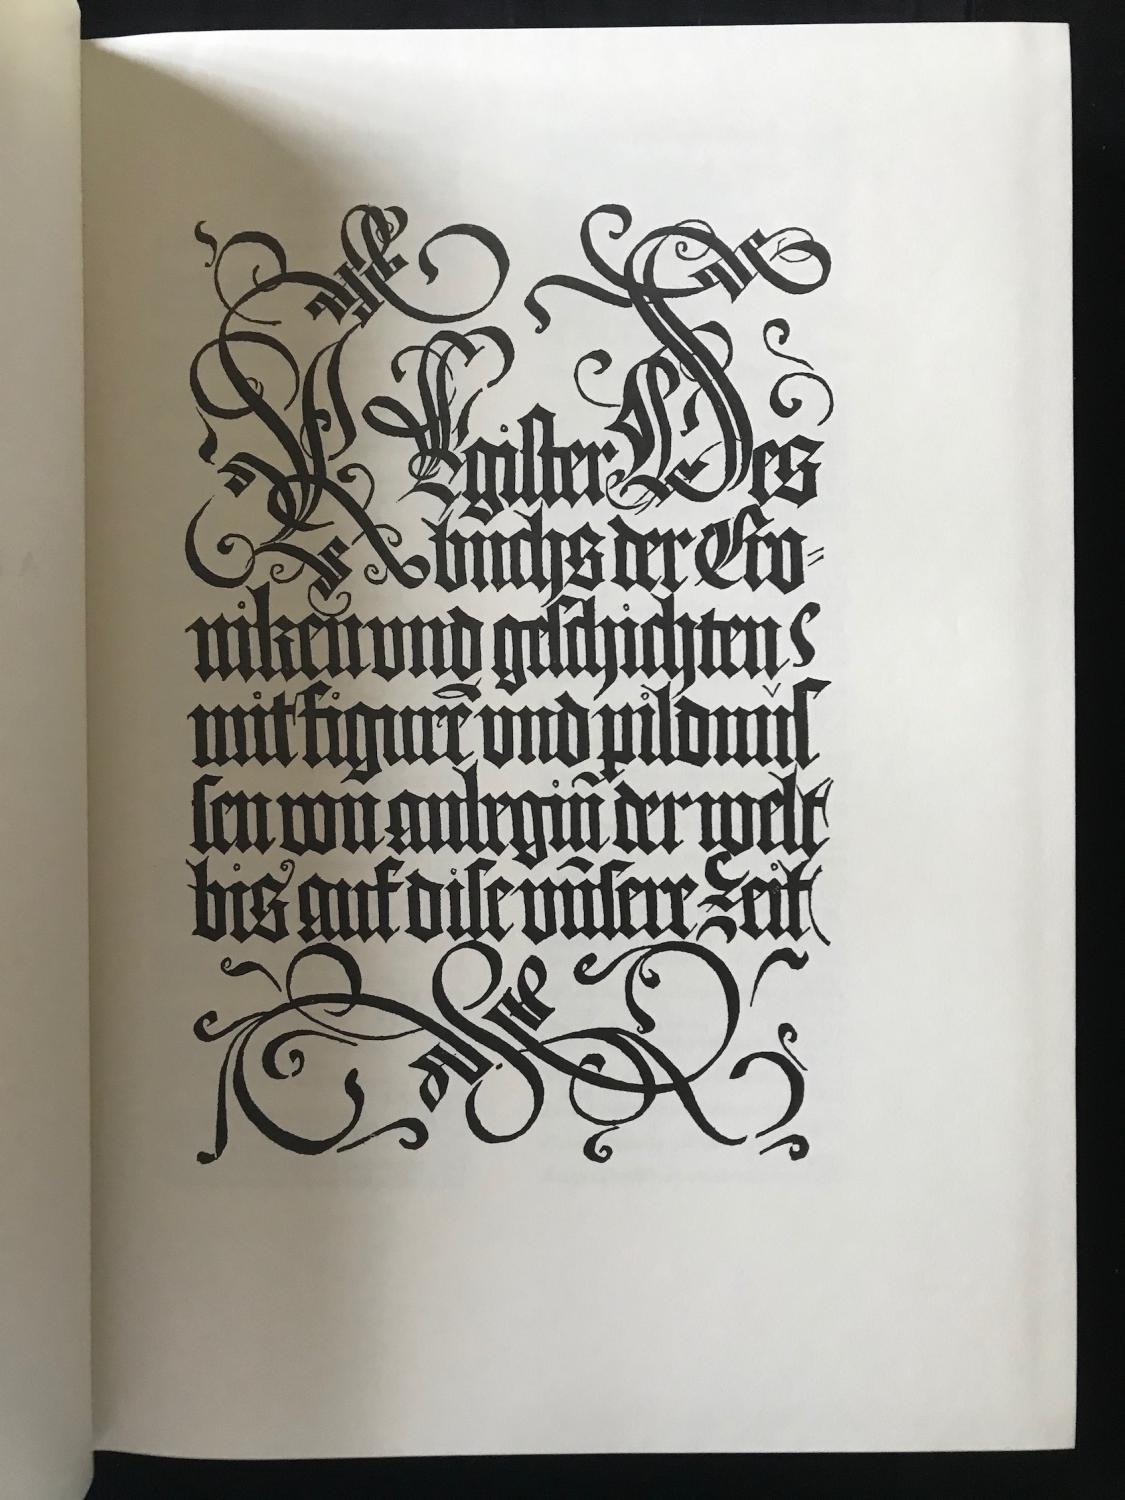 REgister Des
buchs der Cro=
niken vnd geschichten
mit figurẽ vnd pildnus
sen von anbegiñ der welt
bis auf dise vñsere Zeit